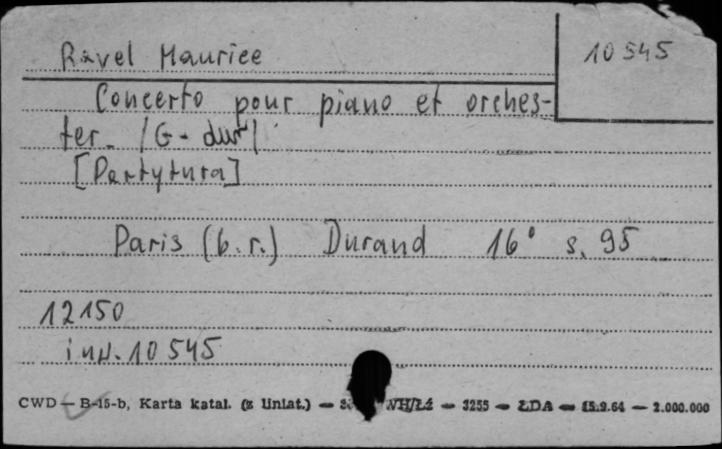 Ravel Maurice
10545
Concerto pour piano et orches-
ter. /G-dur/
[Partytura]
Paris (b.r.) Durand 16° s. 95
12150
inw. 10545
CWD — B-15-b, Karta katal. (z liniat.) — WH/Łź — 3255 — ŁDA — 15.9.64 — 2.000.000